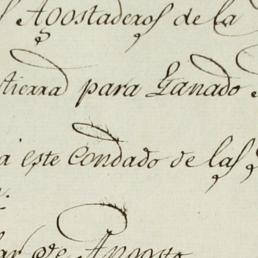 Apostaderos de la
tierra para Ganado
este Condado de las
de Angosto